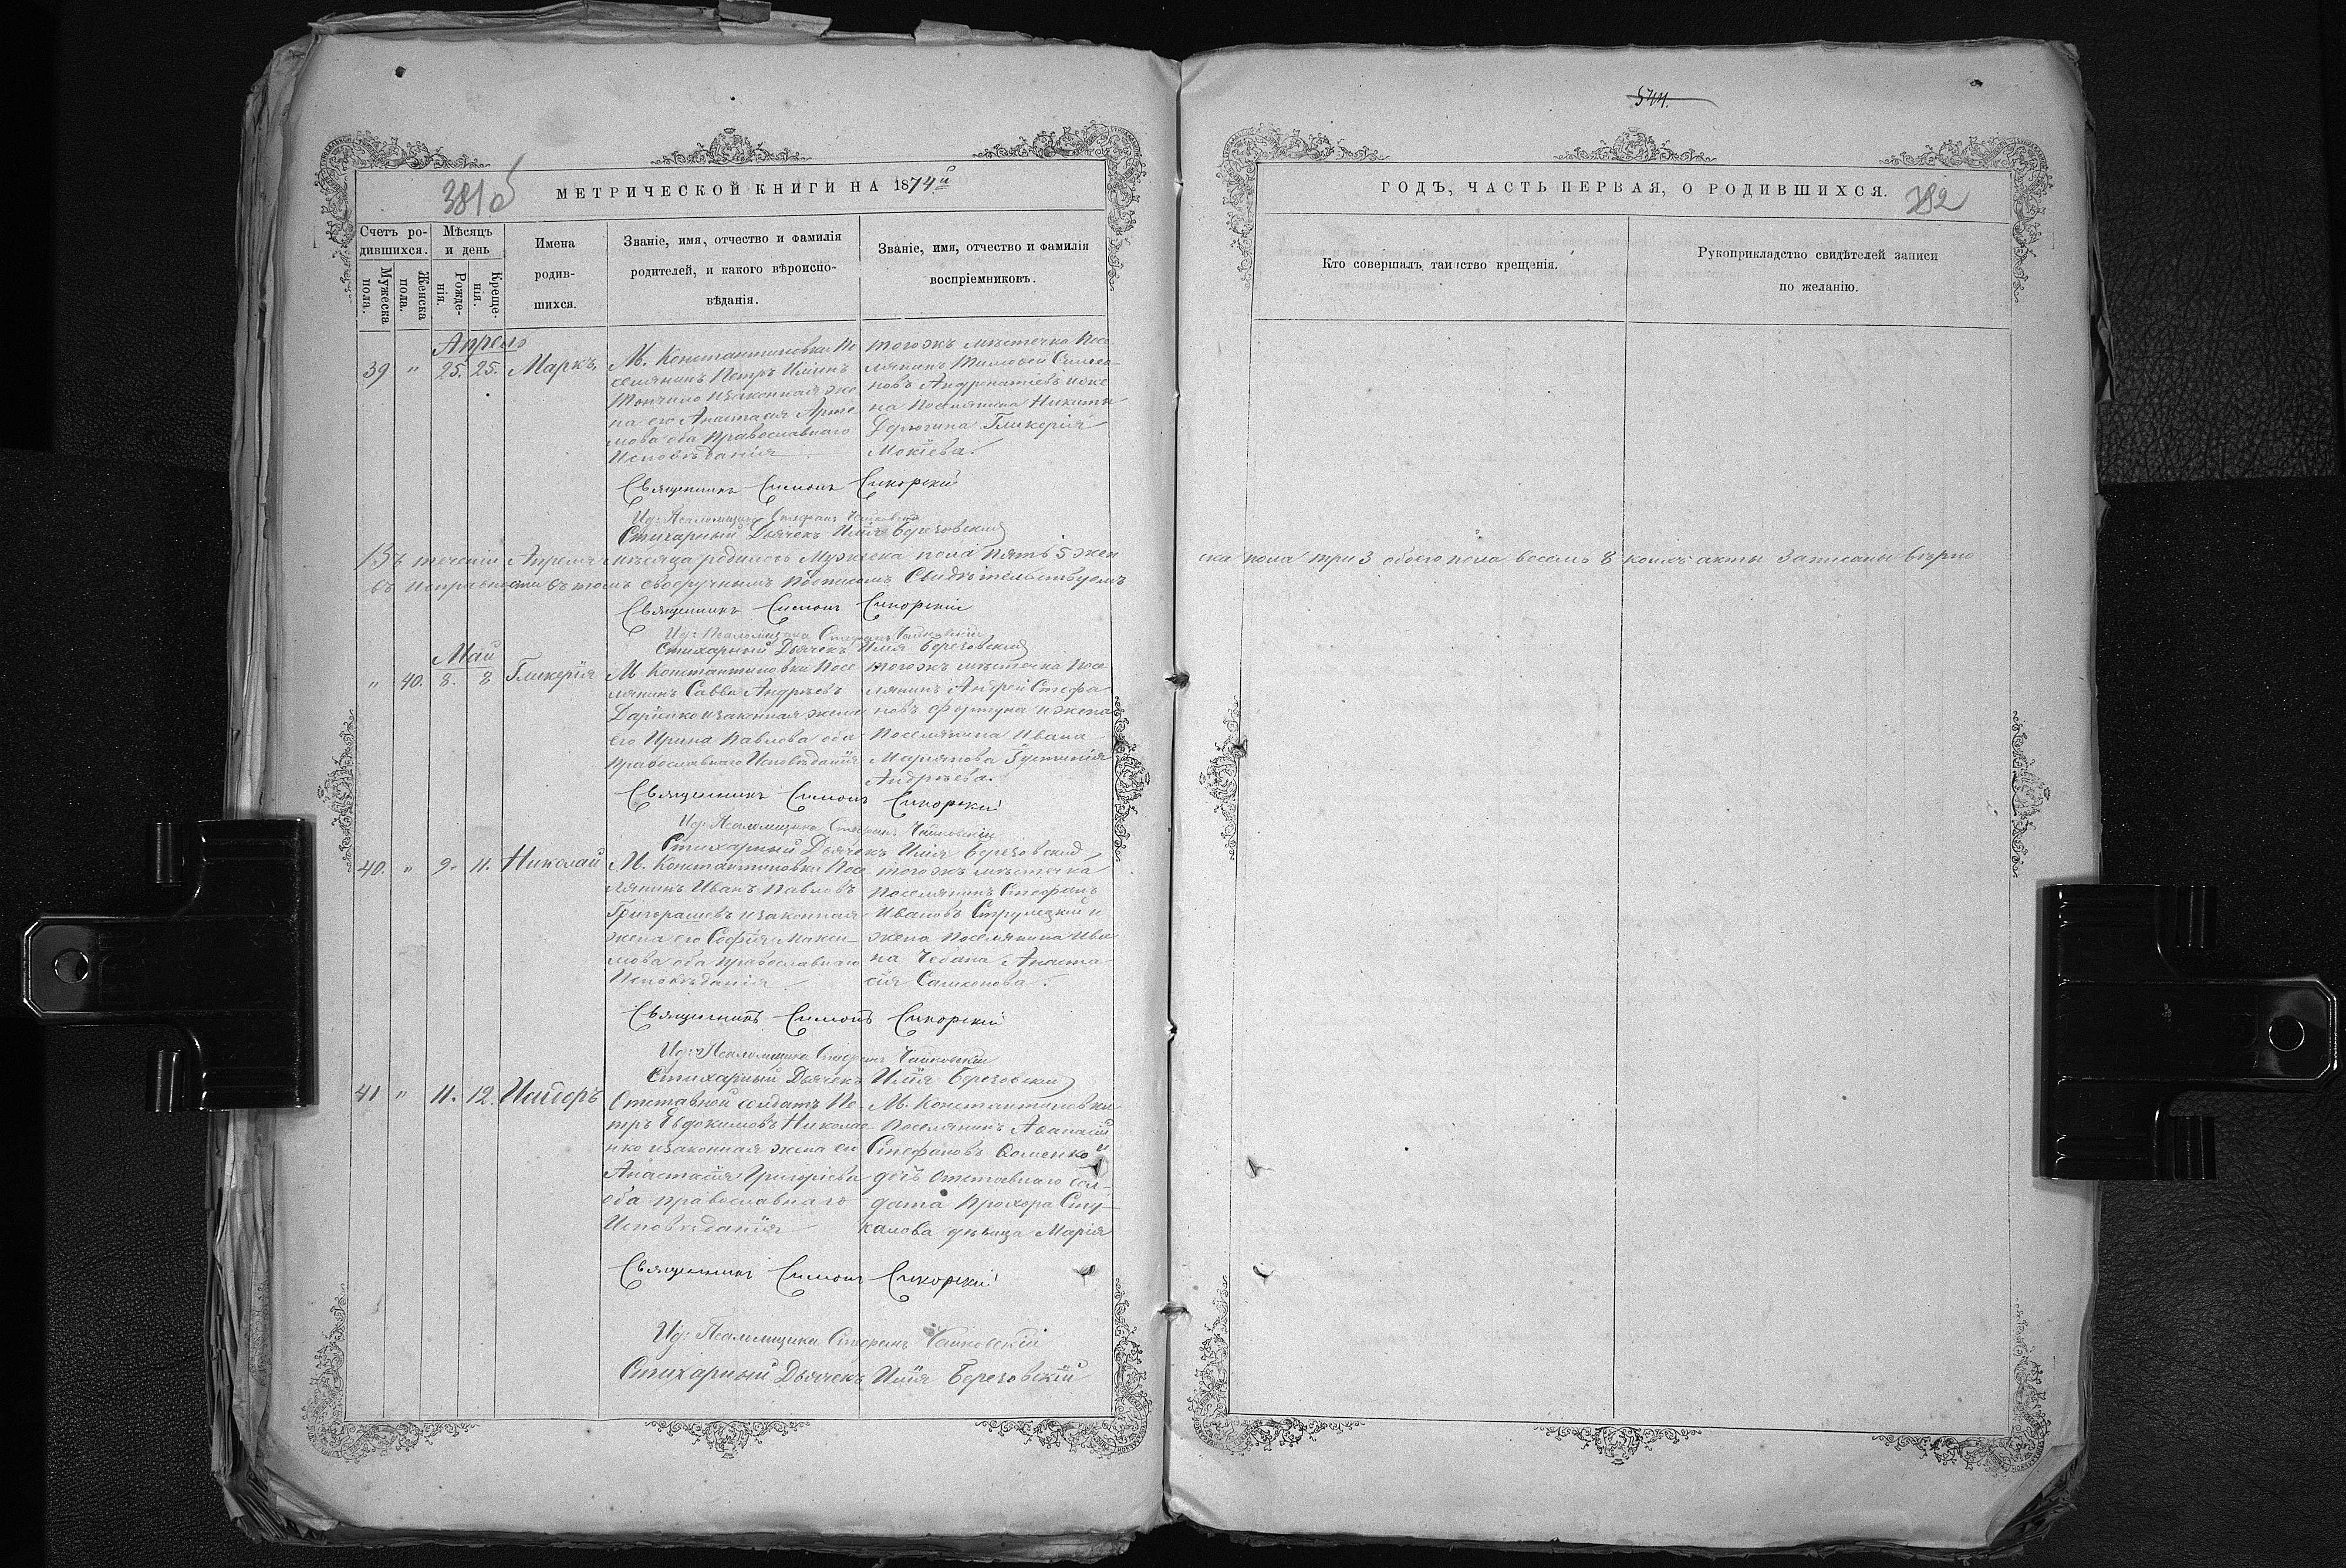 544.
381 об
МЕТРИЧЕСКОЙ КНИГИ НА 1874й
ГОДЪ, ЧАСТЬ ПЕРВАЯ, О РОДИВШИХСЯ.
382
Счетъ ро-
дившихся.
Мужеска
пола.
Женска
пола.
Мѣсяцъ
и день
Рожде-
нія.
Креще-
нія.
Имена
родив-
шихся.
Званіе, имя, отчество и фамилія
родителей, и какого вѣроиспо-
вѣданія.
Званіе, имя, отчество и фамилія
воспріемниковъ.
Кто совершалъ таинство крещенія.
Рукоприкладство свидѣтелей записи
по желанію.
Апрель
39 " 25. 25. Маркъ.
М. Константиновки По
селянинъ Петръ
изаконная же
на его Анастасія Арте
мова оба Православнаго
Исповѣданія
тогожъ мѣстечка Посе
лянинъ Тимофей Симео-
новъ иже
на Поселянина Никиты
Дерюгина Гликерія
Мокіева.
Священникъ Симонъ Сикорскій
Ид: Псаломщика Стефанъ Чайковскій
Стихарный Дьячекъ Илія Березовскій
Въ теченіи Апреля мѣсяца родилось Мужеска пола пять 5 жен
ска пола три 3 обоего пола восемь 8 коихъ акты записаны вѣрно
въ исправности въ томъ своеручнымъ подписомъ Свидѣтельствуемъ
Священникъ Симонъ Сикорскій
Ид: Псаломщика Стефанъ Чайковскій
Стихарный Дьячекъ Илія Березовскій
Май
" 40. 8. 8. Гликерія
М Константиновки Посе
лянинъ Савва Андреевъ
изаконная жена
его Ирина Павлова оба
Православнаго Исповѣданія
тогожъ мѣстечка Посе
лянинъ Андрей Стефа
новъ Фуртуна и жена
Поселянина Ивана
Марянова Іустинія
Андреева.
Священникъ Симонъ Сикорскій
Ид: Псаломщика Стефанъ Чайковскій
Стихарный Дьячекъ Илія Березовскій
40. " 9. 11. Николай
М. Константиновки Посе
лянинъ Иванъ Павловъ
Григорашевъ изаконная
жена его Софія Макси-
мова оба православнаго
Исповѣданія
тогожъ мѣстечка
Поселянинъ Стефанъ
Ивановъ Струлецкій и
жена Поселянина Ива
на Чебана Анаста
сія Самсонова.
Священникъ Симонъ Сикорскій
Ид: Псаломщика Стефанъ Чайковскій
Стихарный Дьячекъ Илія Березовскій
41 " 11. 12. Исидоръ
Отставной солдатъ Пе-
тръ Евдокимовъ Николае
нко изаконная жена его
Анастасія Григоріева
оба православнаго
Исповѣданія
М. Константиновки
Поселянинъ Аѳанасій
Стефановъ Ѳоменко и
дочь отставнаго сол-
дата Прохора Сту-
калова дѣвица Марія
Священникъ Симонъ Сикорскій
Ид: Псаломщика Стефанъ Чайковскій
Стихарный Дьячекъ Илія Березовскій